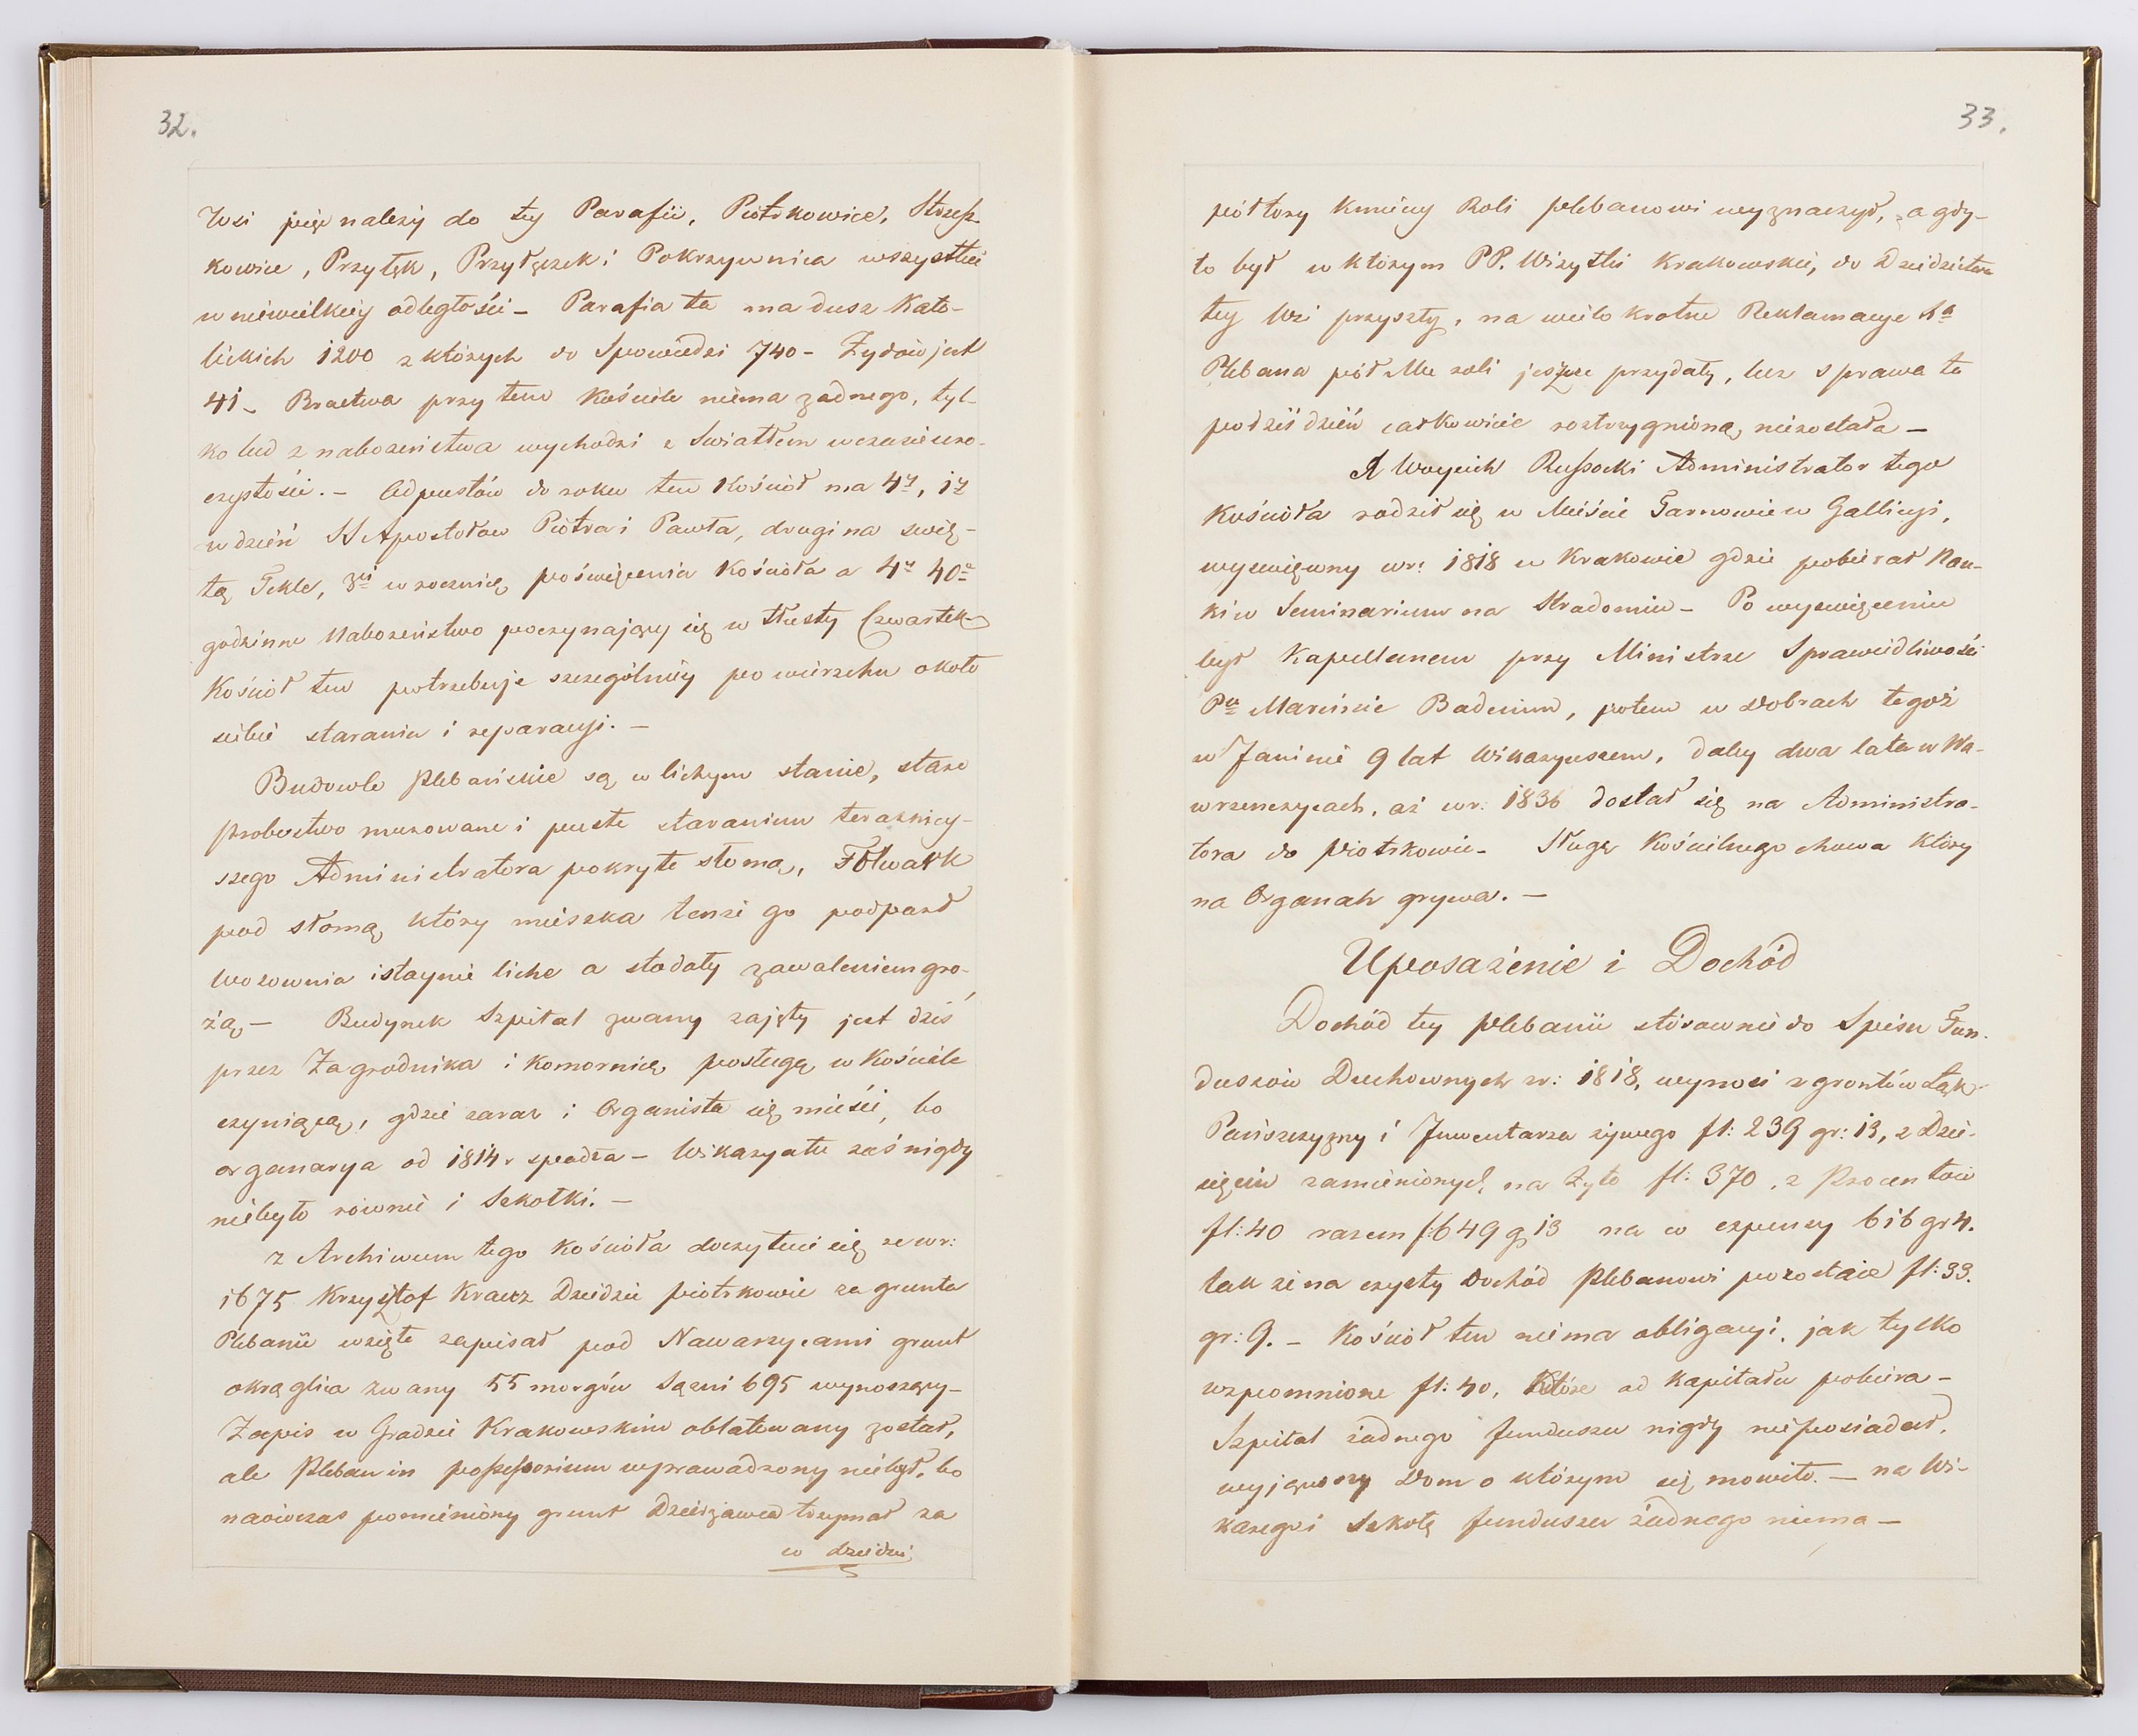 32.
Wsi pięć należy do tey Parafii, Piotrkowice, Strzesz-
kowice, Przyłęk, Przyłęczek i Pokrzywnica wszystkie
w niewielkiey odległości – Parafia ta ma dusz Kato-
lickich 1200 z których do Spowiedzi 740 – Żydów jest
41 – Bractwa przy tem Kościele niema żadnego, tyl-
ko lud z nabożeństwa wychodzi z Swiatłem w czasie uro-
czystości. – Odpustów do roku ten Kościół ma 4ry, 1y
w dzień SS Apostołów Piotra i Pawła, drugi na swię-
tą Teklę, 3ci w rocznicę poświęcenia Kościoła a 4y 40o
godzinne Nabożeństwo poczynający się w tłusty Czwartek
Kościół ten potrzebuje szczególniey po wierzchu około
siebie starania i reparacyi. –
Budowle Plebańskie są w lichym stanie, stare
Probostwo murowane i puste staraniem terazniey-
szego Administratora pokryte słomą, Folwark
pod słomą, który mieszka tenże go podparł
Wozownia i staynie liche a stodoły zawaleniem gro-
żą – Budynek Szpital zwany zajęty jest dziś
przez Zagrodnika i komornicę posługę w Kościele
czyniącą, gdzie zaraz i Organista się mieści, bo
organarya od 1814 r spadła – Wikaryatu zaś nigdy
niebyło równie i Szkołki. –
z Archiwum tego Kościoła doczytuie się że w r:
1675 Krzysztof Kracz Dziedzic Piotrkowic za grunta
Plebanii wzięte zapisał pod Nawarzycami grunt
okrąglica zwany 55 morgów Sążni 695 wynoszący –
Zapis w Grodzie Krakowskim oblatowany został,
ale Pleban in possessorium wprawadzony niebył, bo
naówczas pomieniony grunt Dzierżawca trzymał za
w dziedzi
33.
półtory Kmiecy Roli plebanowi wyznaczył, a gdy
to był w którym PP. Wizytki Krakowskie, do Dziedzictwa
tey Wsi przyszły, na wielokrotne Reklamacye Xa
Plebana pół Me roli jeszcze przydały, lecz sprawa ta
podziś dzień całkowicie roztrzygnioną niezostała –
X Woyciech Russocki Administrator tego
Kościoła rodził się w Mieście Tarnowie w Gallicyi,
wyswięcony w r: 1818 w Krakowie gdzie pobierał Nau-
ki w Seminarium na Stradomiu – Po wyswięceniu
był Kapellanem przy Ministrze Sprawiedliwości
Pu Marcinie Badenim, potem w Dobrach tegoż
w Janinie 9 lat Wikaryuszem, daley dwa lata w Wa-
wrzenczycach, aż w r: 1836 dostał się na Administra-
tora do Piotrkowic – Sługę Kościelnego chowa który
na Organach grywa. –
Uposażenie i Dochód
Dochód tey Plebanii stósownie do Spisu Fun-
duszów Duchownych z r: 1818, wynosi z gruntów Łąk
Pańszczyzny i Inwentarza żywego fl: 239 gr: 13, z Dzie-
sięcin zamienionych na Żyto fl: 370, z Procentow
fl: 40 razem f: 649 g 13 na co expensy 616 gr 4.
tak że na czysty Dochód Plebanowi pozostaie fl: 33.
gr: 9. – Kościół ten niema obligacyi, jak tylko
wzpomnione fl: 40, które od kapitału pobiera –
Szpital żadnego funduszu nigdy nieposiadał,
wyjąwszy Dom o którym się mowiło. – na Wi-
karego i Szkołę funduszu żadnego niema –